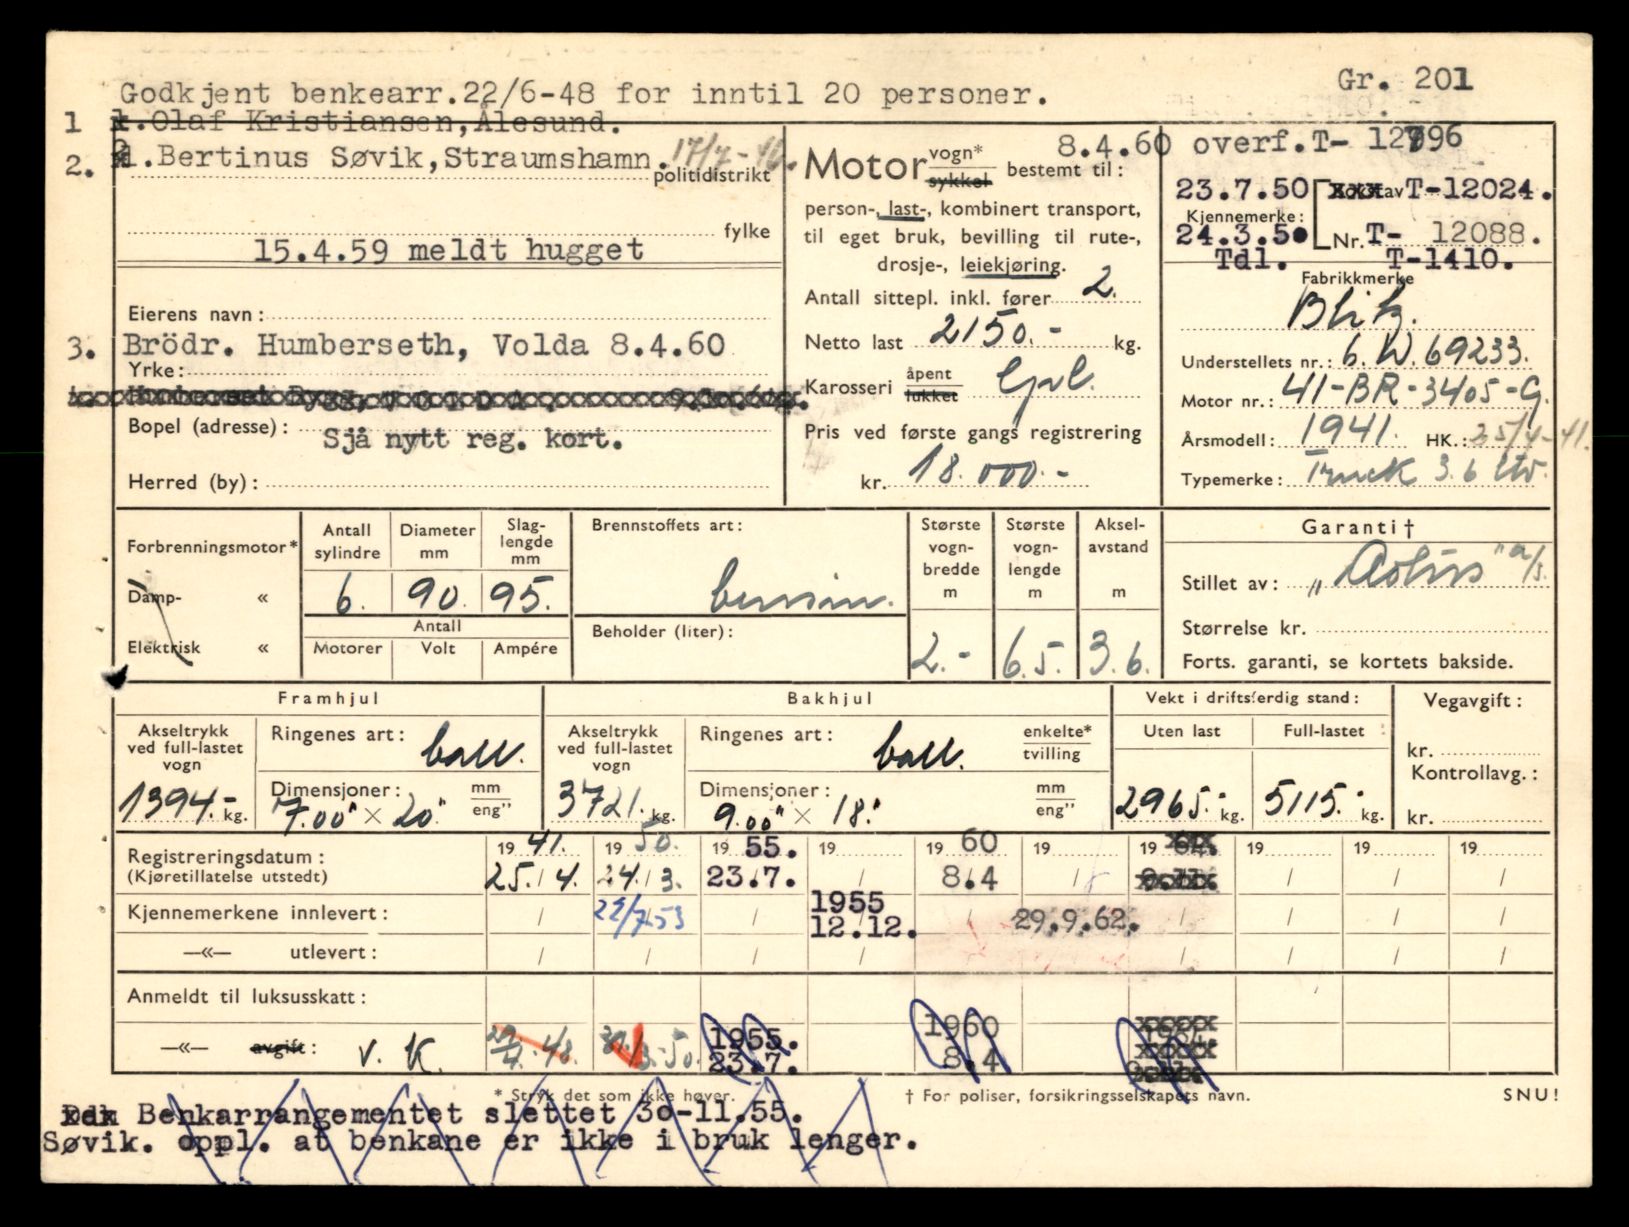 Godkjent benkearr.22/6-48 for inntil 20 personer.
Gr. 201
1 1.Olaf Kristiansen,Ålesund.
2. Bertinus Søvik,Straumshamn. 17/7-46.
politidistrikt
fylke
15.4.59 meldt hugget
Eierens navn:
3. Brödr. Humberseth, Volda 8.4.60
Yrke:
Bopel (adresse):
Sjå nytt reg. kort.
Herred (by):
Motor vogn* sykkel bestemt til:
person-, last-, kombinert transport,
til eget bruk, bevilling til rute-,
drosje-, leiekjøring.
Antall sittepl. inkl. fører 2.
Netto last 2150.- kg.
Karosseri åpent lukket
Pris ved første gangs registrering
kr. 18.000.-
8.4.60 overf.T- 12796
23.7.50 T-12024.
Kjennemerke:
24.3.50 Nr. T- 12088.
Tdl. T-1410.
Fabrikkmerke
Blitz.
Understellets nr.: 6.W.69233.
Motor nr.: 41-BR-3405-G.
Årsmodell: 1941. HK.: 25/4-41.
Typemerke: Truck 3.6 ltr.
Forbrenningsmotor*
Damp- «
Elektrisk «
Antall sylindre
6.
Diameter mm
90.
Slag-lengde mm
95.
Antall
Motorer Volt Ampére
Brennstoffets art:
bensin.
Beholder (liter):
Største vogn-bredde m
2.-
Største vogn-lengde m
6.5.
Aksel-avstand m
3.6.
Garanti †
Stillet av: a/s.
Størrelse kr.
Forts. garanti, se kortets bakside.
Framhjul
Akseltrykk ved full-lastet vogn
1394.- kg.
Ringenes art: ball.
Dimensjoner: mm eng"
7.00" × 20."
Bakhjul
Akseltrykk ved full-lastet vogn
3721. kg.
Ringenes art: ball. enkelte* tvilling
Dimensjoner: mm eng"
9.00" × 18."
Vekt i driftsferdig stand:
Uten last Full-lastet
2965.- kg. 5115.- kg.
Vegavgift:
kr.
Kontrollavg.:
kr.
Registreringsdatum: 19 41. 19 50. 19 55. 19 19 60 19 19 64. 19 19 19
(Kjøretillatelse utstedt) 25./4. 24./3. 23.7. / 8.4 / / / /
Kjennemerkene innlevert: / 22/7.53 / 1955 12.12. / 29.9.62. / / / /
—«— utlevert: / / / / / / / / / /
Anmeldt til luksusskatt:
—«— avgift: v. K. 1955. 23.7. 1960 8.4 1964.
* Stryk det som ikke høver.
† For poliser, forsikringsselskapets navn.
SNU!
Benkarrangementet slettet 30-11.55.
Søvik. oppl. at benkane er ikke i bruk lenger.